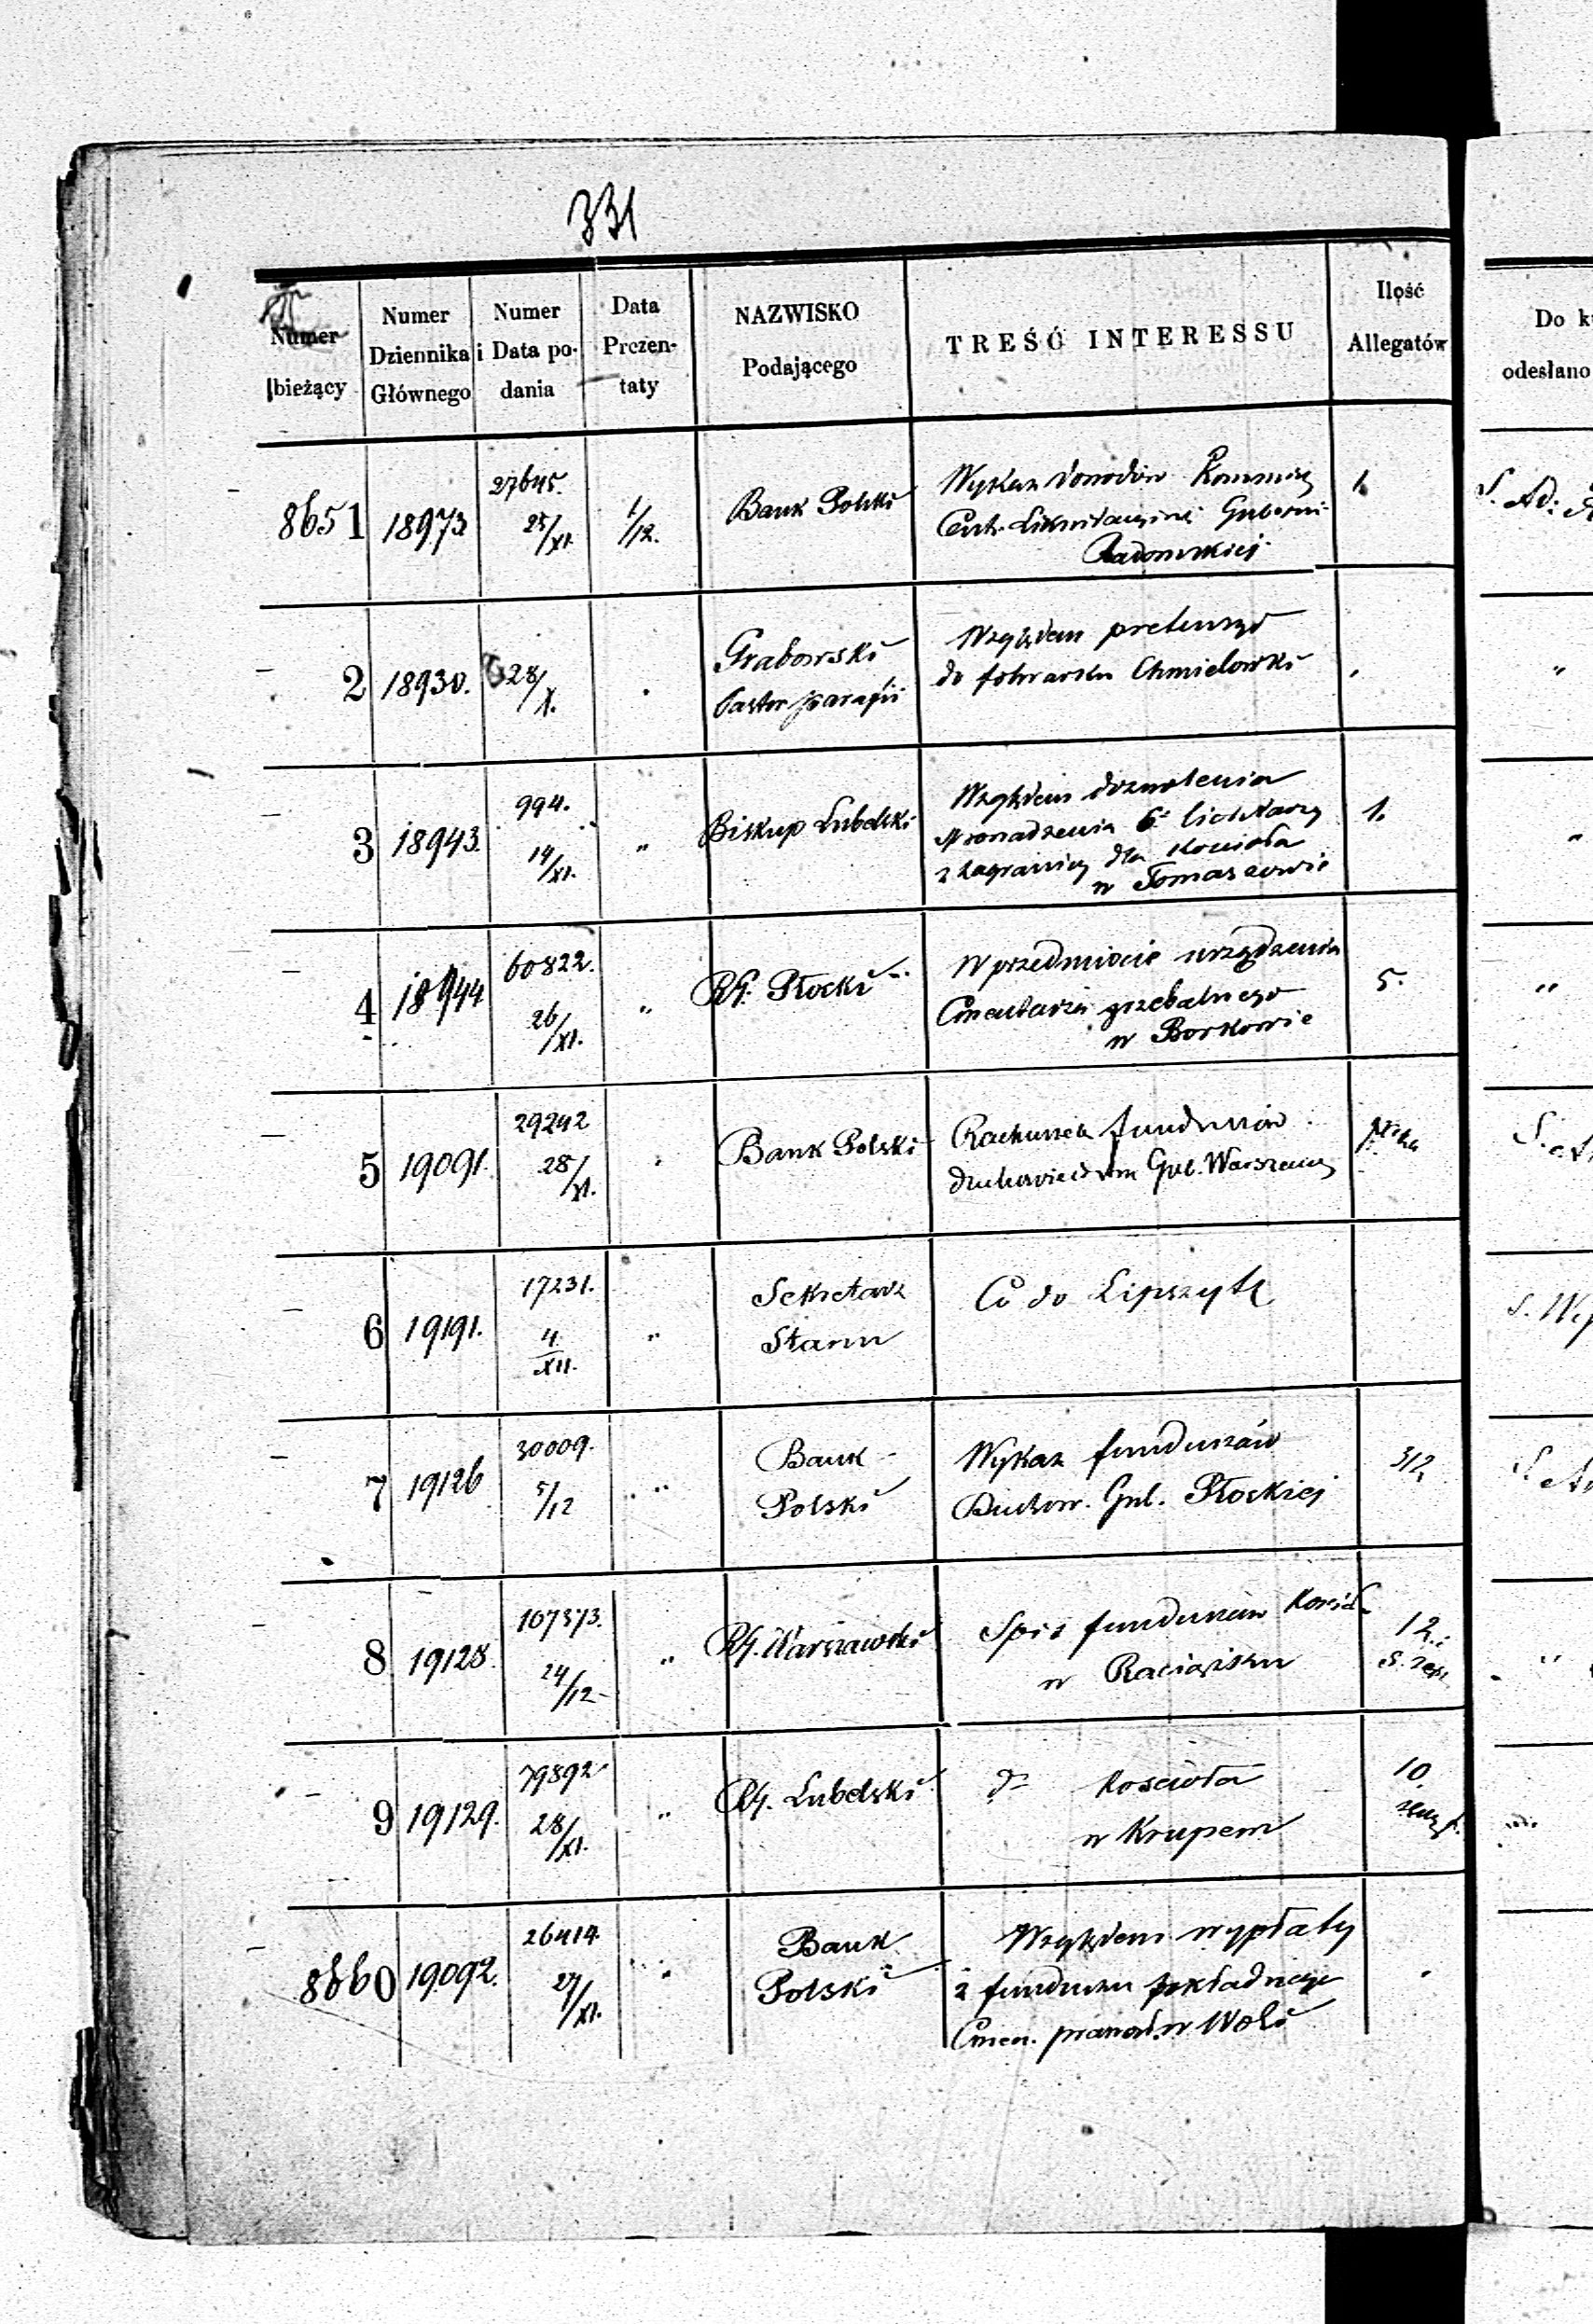 331
Numer bieżący
Numer Dziennika Głównego
Numer i Data podania
Data Prezentaty
NAZWISKO Podającego
TREŚĆ INTERESSU
Ilość Allegatów
Do
odesłano
8651 18973 27645. 25/XI. 1/12. Bank Polski
Wykaz dowodów Kommissy
Centr. Likwidacyjnej Guberni
Radomskiej
1.
S. Ad:
2 18930. 28/X.
Grabowski
Pastor parafii
Względem pretensyi
do folwarku Chmielowki
"
3 18943. 994. 14/XI. " Biskup Lubelski
Względem dozwolenia
sprowadzenia 6. lichtarzy
z zagranicy dla kościoła
w Tomaszowie
1.
"
4 18944 60822. 26/XI. " RG. Płocki
W przedmiocie urządzenia
Cmentarza grzebalnego
w Borkowie
5.
"
5 19091. 29242 28/XI. " Bank Polski
Rachunek funduszów
duchowieństwa Gub. Warszaws
6 19191. 17231. 4/XII. "
Sekretarz
Stanu
Co do Lipszytz
7 19126 30009. 5/12 "
Bank
Polski
Wykaz funduszów
Duchow. Gub. Płockiej
3/2
8 19128. 107373. 24/12 " RG. Warszawski
Spis funduszów Kości
w Raciążku
12.
"
9 19129. 79892 28/XI. " RG. Lubelski
do kościoła
w Krupem
10.
"
8660 19092. 26414. 27/XI. "
Bank
Polski
Względem wypłaty
z funduszu pokładnego
Cmen. prawosł. w Woli